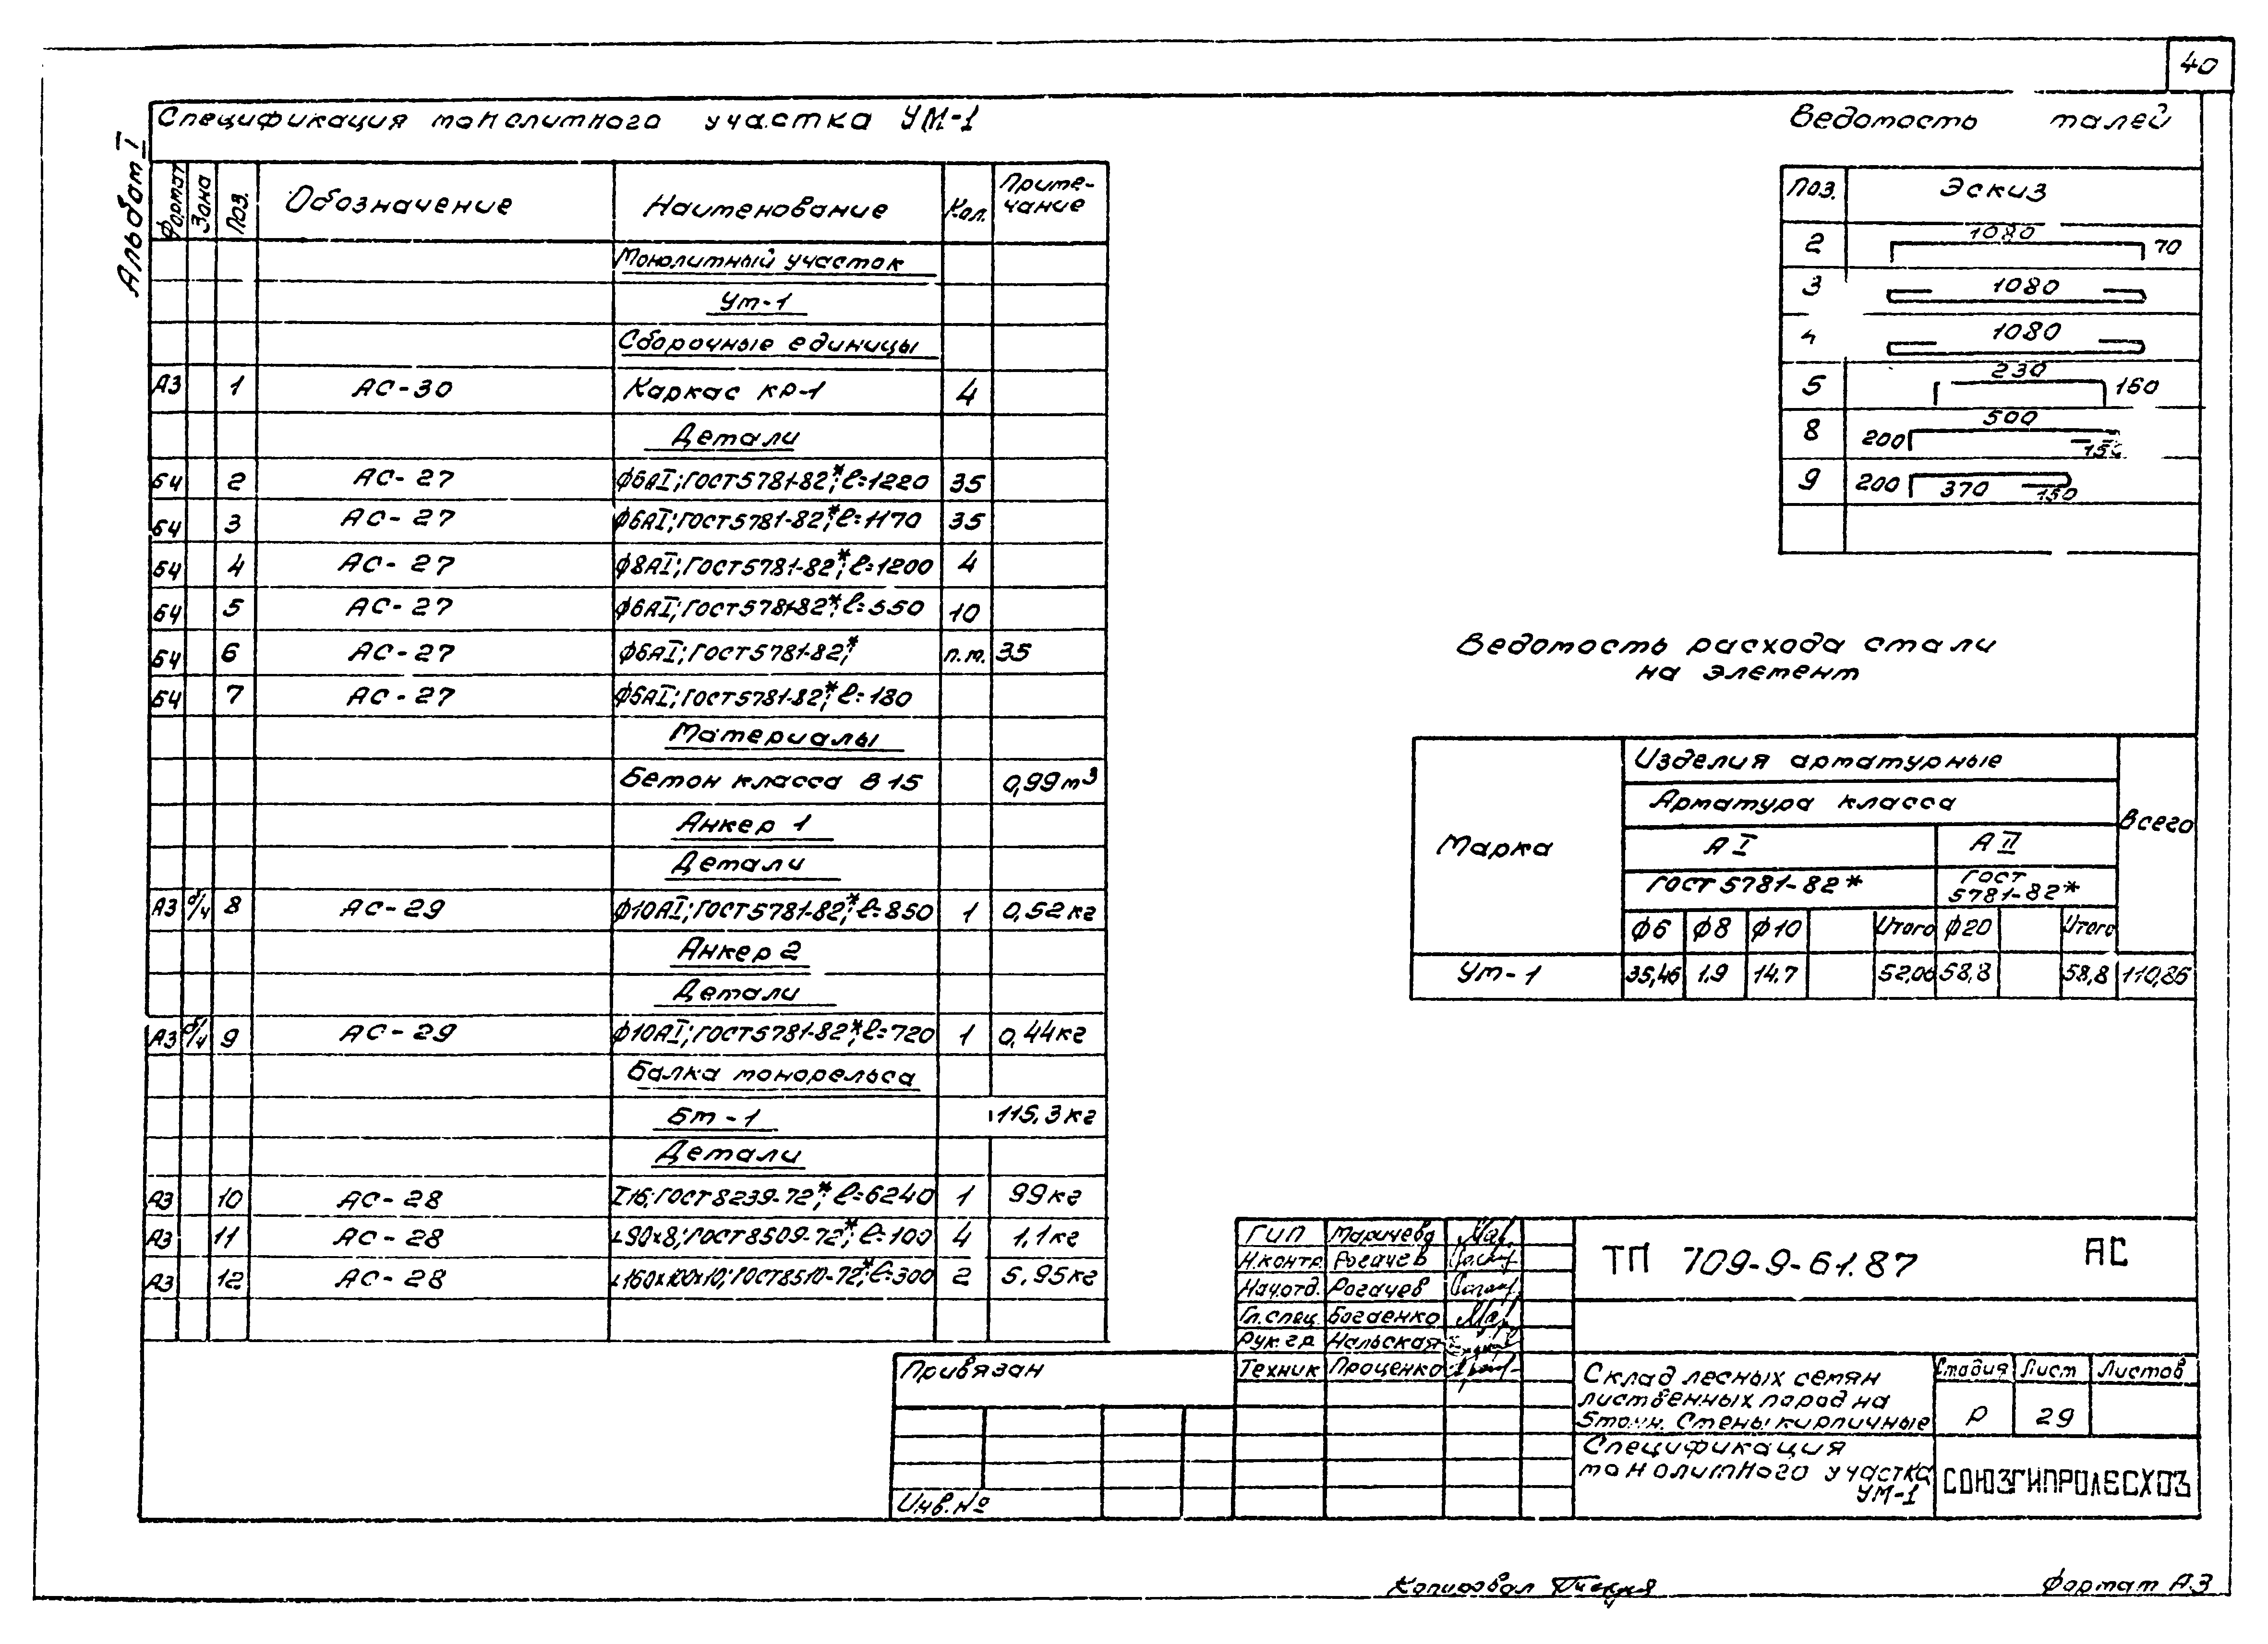 40
Альбом I
Спецификация монолитного участка УМ-1
Формат Зона Поз. Обозначение Наименование Кол. Приме-чание
Монолитный участок
Ум-1
Сборочные единицы
А3 1 АС-30 Каркас КР-1 4
Детали
БЧ 2 АС-27 ф6АI; ГОСТ 5781-82*; ℓ=1220 35
БЧ 3 АС-27 ф6АI; ГОСТ 5781-82*; ℓ=1170 35
БЧ 4 АС-27 ф8АI; ГОСТ 5781-82*; ℓ=1200 4
БЧ 5 АС-27 ф6АI; ГОСТ 5781-82*; ℓ=550 10
БЧ 6 АС-27 ф6АI; ГОСТ 5781-82*; п.м. 35
БЧ 7 АС-27 ф6АI; ГОСТ 5781-82*; ℓ=180
Материалы
Бетон класса В 15 0,99 м³
Анкер 1
Детали
А3 б/ч 8 АС-29 ф10АI; ГОСТ 5781-82*; ℓ=850 1 0,52 кг
Анкер 2
Детали
А3 б/ч 9 АС-29 ф10АI; ГОСТ 5781-82*; ℓ=720 1 0,44 кг
Балка монорельса
Бм-1 115,3 кг
Детали
А3 10 АС-28 I16; ГОСТ 8239-72*; ℓ=6240 1 99 кг
А3 11 АС-28 ∟90х8; ГОСТ 8509-72*; ℓ=100 4 1,1 кг
А3 12 АС-28 ∟160х100х10; ГОСТ 8510-72*; ℓ=300 2 5,95 кг
Ведомость талей
Поз. Эскиз
2 1080 70
3 1080
4 1080
5 230 160
8 200 500 150
9 200 370 150
Ведомость расхода стали
на элемент
Марка Изделия арматурные Всего
Арматура класса
А I А II
ГОСТ 5781-82* ГОСТ 5781-82*
ф6 ф8 ф10 Итого ф20 Итого
Ум-1 35,46 1.9 14.7 52,06 58,8 58,8 110,86
ГИП Маричева
Н.контр. Рогачев
Нач.отд. Рогачев
Гл.спец. Богаенко
Рук.гр. Нальская
Техник Проценко
ТП 709-9-61.87 АС
Привязан
Инв.№
Склад лесных семян
лиственных пород на
5 тонн. Стены кирпичные
Стадия Лист Листов
Р 29
Спецификация
монолитного участка
УМ-1
СОЮЗГИПРОЛЕСХОЗ
Копировал
Формат А3